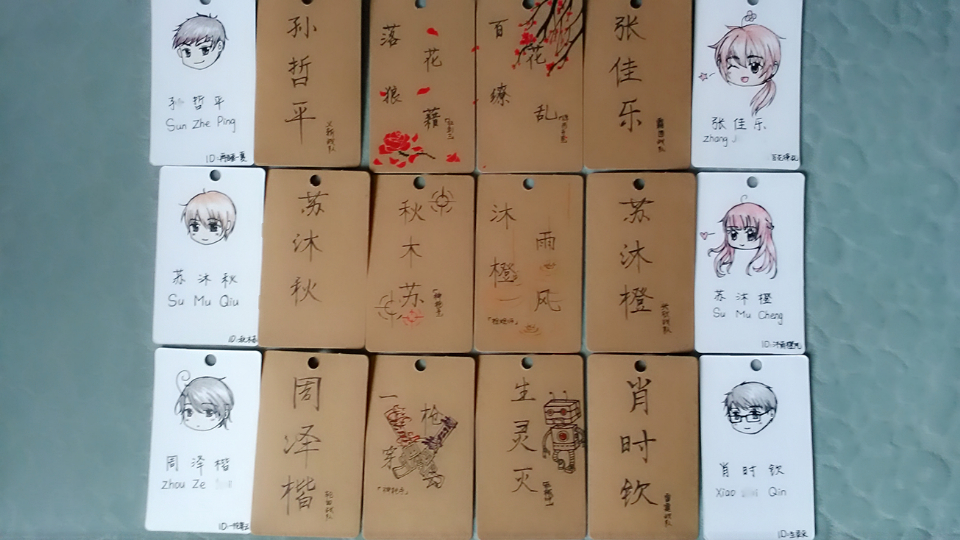 孙哲平
Sun Zhe Ping
孙哲平
落花狼藉
百花缭乱
张佳乐
张佳乐
Zhang
苏沐秋
Su Mu Qiu
苏沐秋
秋木苏
沐雨橙风
苏沐橙
苏沐橙
Su Mu Cheng
周泽楷
Zhou Ze
周泽楷
一枪穿云
生灵灭
肖时钦
肖时钦
Xiao Qin
ID:生灵灭